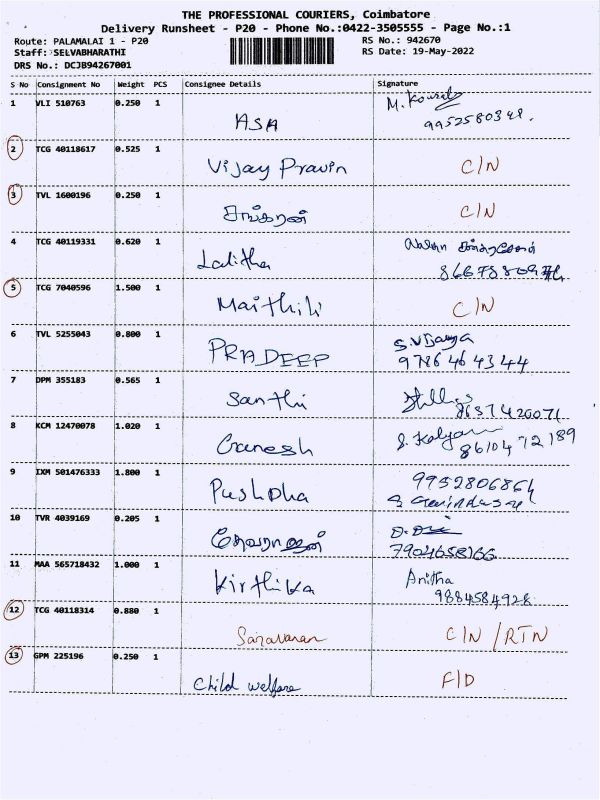 THE PROFESSIONAL COURIERS, Coimbatore
Delivery Runsheet - P20 - Phone No.:0422-3505555 - Page No.:1
Route: PALAMALAI 1 - P20
RS No.: 942670
Staff: SELVABHARATHI
RS Date: 19-May-2022
DRS No.: DCJB94267001
S No Consignment No Weight PCS Consignee Details Signature
1 VLI 510763 0.250 1 ASA M. 
9952580348.
2 TCG 40118617 0.525 1 Vijay Pravin C/N
3 TVL 1600196 0.250 1 சங்கரன் C/N
4 TCG 40119331 0.620 1 Lalitha
5 TCG 7040596 1.500 1 Maithili C/N
6 TVL 5255043 0.800 1 PRADEEP S.Vijaya
9786464344
7 DPM 355183 0.565 1 Santhi
8637420071
8 KCM 12470078 1.020 1 Ganesh S. Kalyani
8610472189
9 IXM 501476333 1.800 1 Pushpha 9952806864
10 TVR 4039169 0.205 1
7904658166
11 MAA 565718432 1.000 1 Kirthika Anitha
9884584928
12 TCG 40118314 0.880 1 Saravanan C/N /RTN
13 GPM 225196 0.250 1 Child welfare F/D